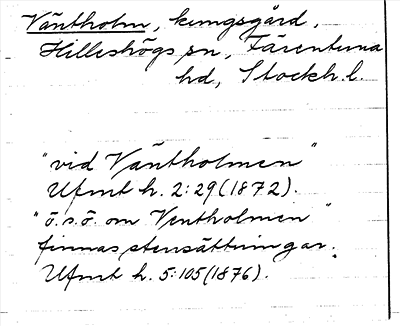 Väntholm, kungsgård,
Hilleshögs sn, Färentuna
hd, Stockh. l.
"vid Väntholmen"
Ufmt h. 2:29 (1872).
"ö.s.ö. om Ventholmen"
finnas stensättningar.
Ufmt h. 5:105 (1876).